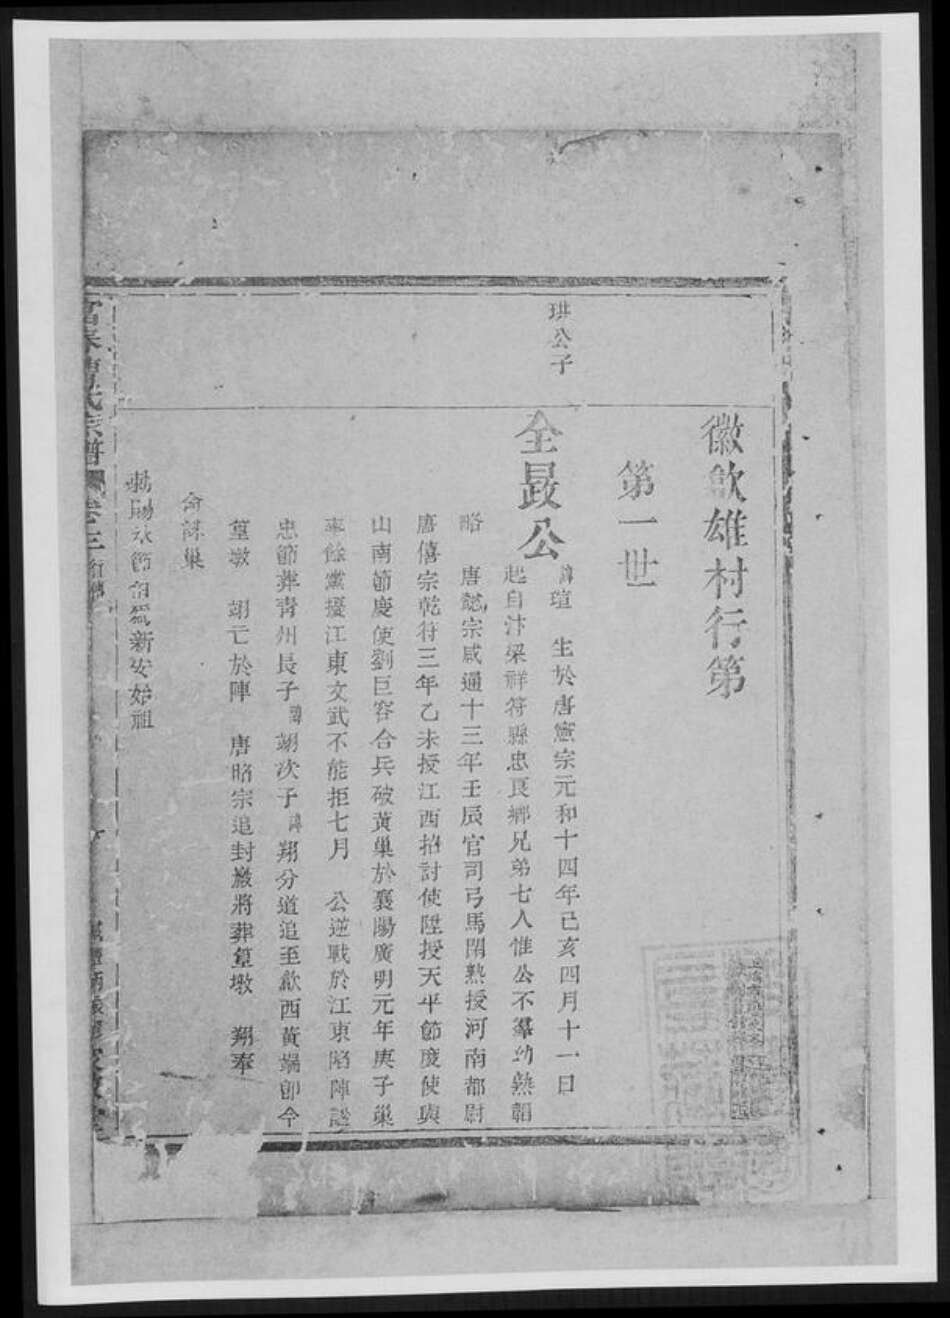 徽歙雄村行第
第一世
珙公子
全晸公
諱瑄 生於唐憲宗元和十四年己亥四月十一日
起自汴梁祥符縣忠良鄉兄弟七人惟公不羣幼熟韜
略 唐懿宗咸通十三年壬辰官司弓馬閑熟授河南都尉
唐僖宗乾符三年乙未授江西招討使陞授天平節度使與
山南節慶使劉巨容合兵破黃巢於襄陽廣明元年庚子巢
率餘黨擾江東文武不能拒七月 公逆戰於江東陷陣諡
忠節葬青州長子諱翊次子諱翔分道追至歙西黃墩卽今
篁墩 翊亡於陣 唐昭宗追封巖將葬篁墩 翔奉
命誅巢
富春曹氏宗譜 卷三
新安始祖